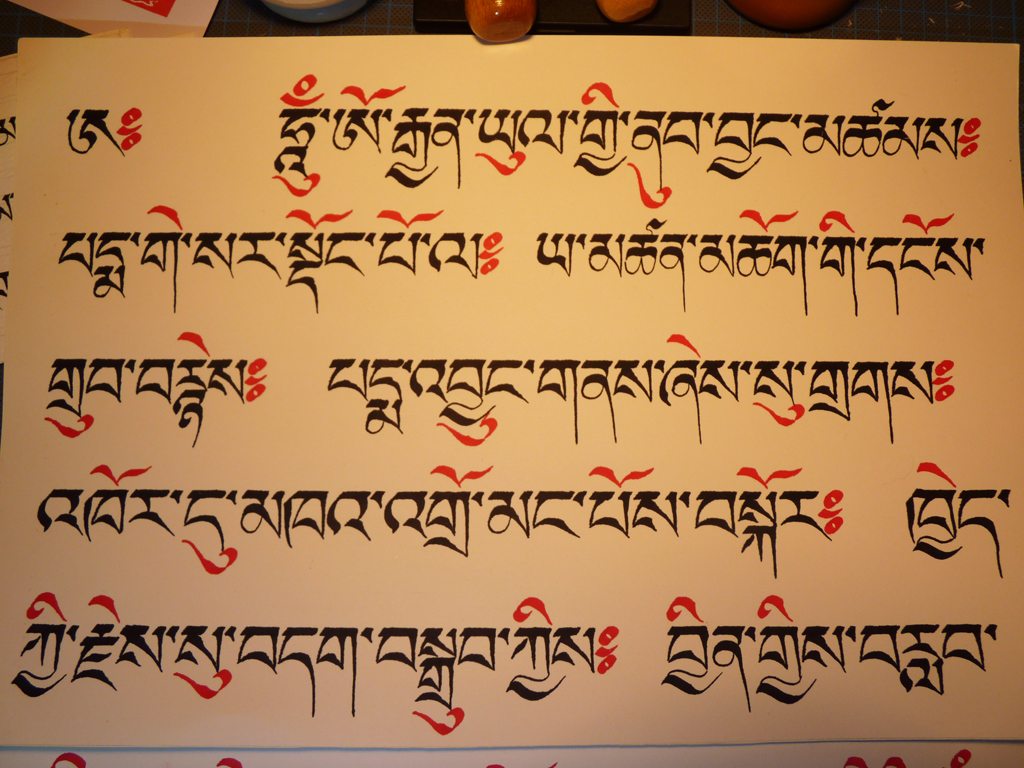 ཨ༔ ཧཱུྃ་ཨོ་རྒྱན་ཡུལ་གྱི་ནུབ་བྱང་མཚམས༔
པདྨ་གེ་སར་སྡོང་པོ་ལ༔ ཡ་མཚན་མཆོག་གི་དངོས་
གྲུབ་བརྙེས༔ པདྨ་འབྱུང་གནས་ཞེས་སུ་གྲགས༔
འཁོར་དུ་མཁའ་འགྲོ་མང་པོས་བསྐོར༔ ཁྱེད་
ཀྱི་རྗེས་སུ་བདག་བསྒྲུབ་ཀྱིས༔ བྱིན་གྱིས་བརླབ་